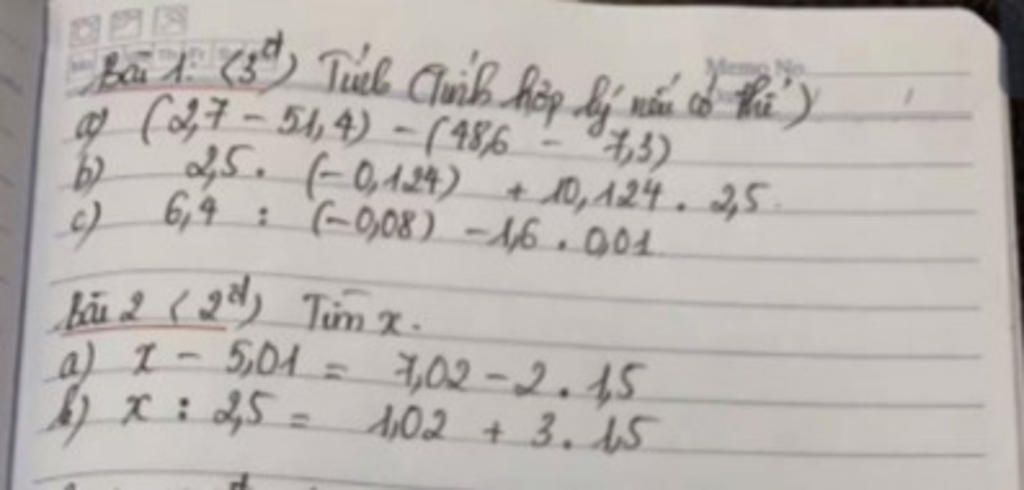 Bài 1. (3đ) Tính (Tính hợp lý nếu có thể)
a) (2,7 - 51,4) - (48,6 - 7,3)
b) 2,5 . (-0,124) + 10,124 . 2,5
c) 6,4 : (-0,08) - 1,6 . 0,01
Bài 2 (2đ) Tìm x.
a) x - 5,01 = 7,02 - 2 . 1,5
b) x : 2,5 = 1,02 + 3 . 1,5